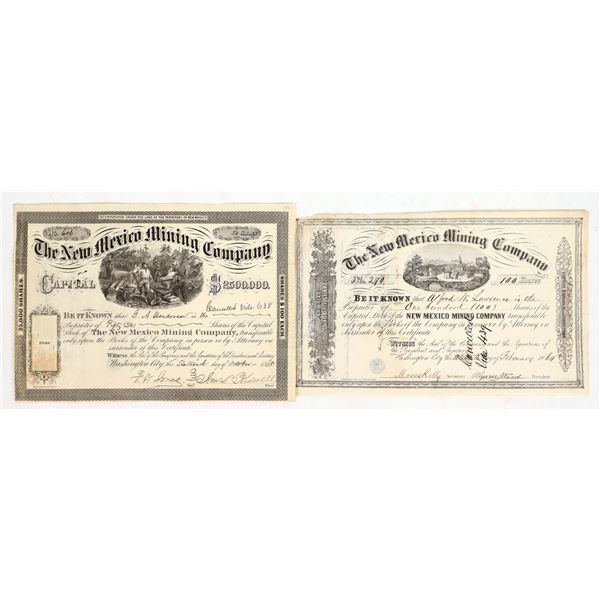 INCORPORATED UNDER THE LAWS OF THE TERRITORY OF NEW MEXICO
No. 606
Shares
The New Mexico Mining Company
CAPITAL $2,500,000.
25,000 SHARES
SHARES $100 EACH
Cancelled Vide 638
BE IT KNOWN that G. A. Henderson is the
Proprietor of Fifty Shares of the Capital
Stock of The New Mexico Mining Company, transferable
only upon the Books of the Company in person or by Attorney on
surrender of this Certificate
Witness the Seal of the Company and the signatures of the President and Secretary
Washington City the day of October
The New Mexico Mining Company
No. 290
100 Shares
BE IT KNOWN that Alfred N. Lawrence is the
Proprietor of One hundred (100) Shares of the
Capital Stock of the NEW MEXICO MINING COMPANY transferable
only upon the Books of the Company in person or by Attorney on
Surrender of this Certificate
Cancelled Vide 439
Whereof the Seal of the Company and the signatures of the
President and
Washington City the February 1864
Moses Kelly Secretary President